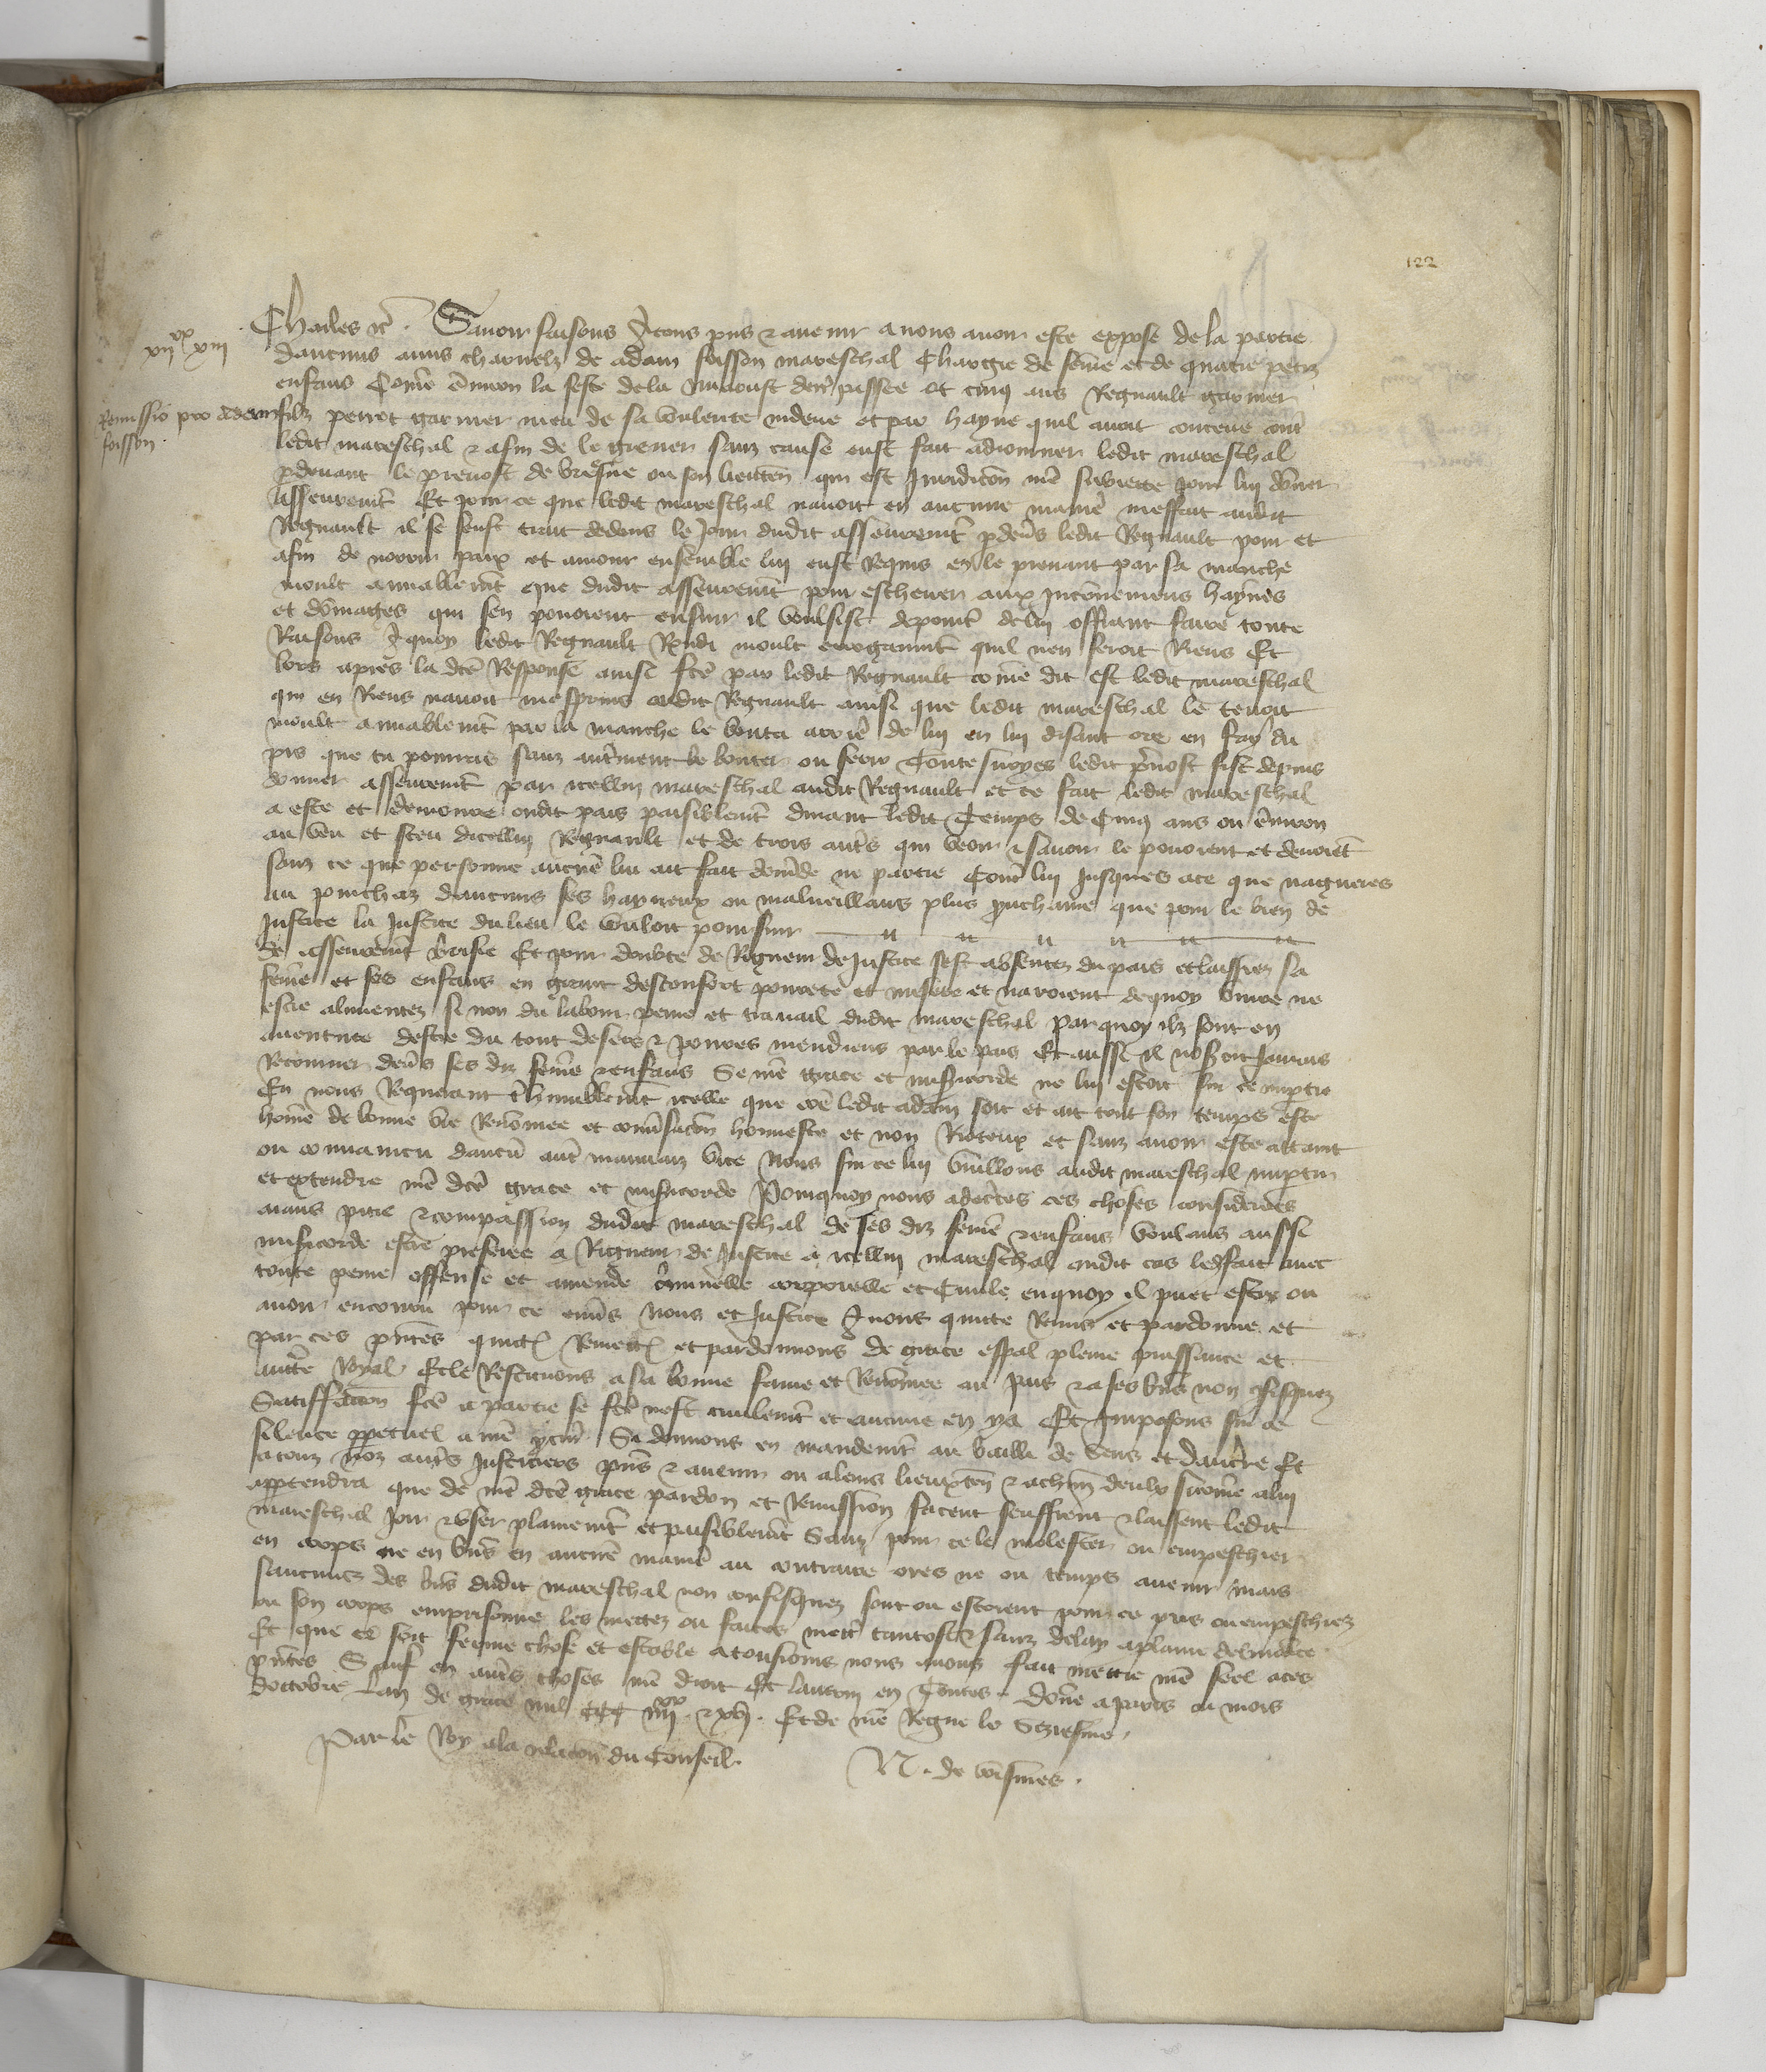 122
xiiˣˣ xiii
Remissio pro Adam
foisson
Charles etc. Savoir faisons a tous pns & avenir a nous avoir este expose de la partie
daucuns amis charnelz de adam foisson mareschal chargie de feme et de quatre petiz
enfans Come environ la feste de la miaoust derr passee ot cinq ans Regnault garnier
filz perrot garnier meu de sa voulente indeue et par hayne quil avoit conceue contre
ledit mareschal & afin de le grever sanz cause eust fait adiourner ledit mareschal
pdevant le prevost de ou son lieuten qui est Juridicon me subgette pour lui doner
asseurement Et pour ce que ledit mareschal navoit en aucune maniere meffait audit
Regnault il se feust trait dedens le Jour dudit asseurement pdevs ledit Regnault pour et
afin de norrir paix et amour ensemble lui eust Requis en le prenant par sa manche
moult amiablement que dudit asseurement pour eschever aux Inconveniens haynes
et domages qui sen povoient ensuir il voulsist deporter de lui offrant faire toute
Raisons A quoy ledit Regnault Rendi moult arrogamment quil nen feroit Riens Et
lors apres la dce Response ainsi fce par ledit Regnault come dit est ledit mareschal
qui en Riens navoit mesprins audit Regnault ainsi que ledit mareschal le tenoit
moult amiablement par la manche le bouta arrie de lui en lui disant ore en fay du
pis que tu pourras sanz autrement le bouter ou ferir Toutesvoyes ledit prevost fist depuis
donner asseurement par icellui mareschal audit Regnault et ce fait ledit mareschal
a este et demoure oudit pais paisiblement durant ledit Temps de Cinq ans ou environ
au veu et sceu dicellui Regnault et de tous autrs qui veoir & savoir le povoient et devoient
sanz ce que personne aucune lui ait fait demde ne partie Contre lui Jusques a ce que nagueres
au pourchaz daucuns ses hayneux ou malveillans plus que pour le bien de
Justice la Justice du lieu le vouloit poursuir
de asseurement brisie Et pour doubte de Rigueur de Justice sest absentez du pais et laissiez sa
feme et ses enfans en grant desconfort povrete et misere et navoient dequoy vivre ne
estre alimentez si non du labour peine et travail dudit mareschal par quoy ilz sont en
aventure destre du tout desers & povres mendiens par le pais Et aussi il noseroit Jamais
Retourner devs ses diz feme & enfans Se nre grace et misericorde ne lui estoit sur ce imptie
En nous Requerant humblement icelle que come ledit adam soit et ait tout son temps este
home de bonne vie Renomee et conversacon honneste et non Rioteux et sanz avoir este attaint
ou convaincu daucun autre mauvaiz vice Nous sur ce lui vueillons audit mareschal imptir
et extendre nre dce grace et misericorde Pourquoy nous adcertes ces choses considerees
aians pitie & compassion dudit mareschal de ses diz feme & enfans voulans aussi
misericorde estre preferee a Rigueur de Justice a icellui mareschal oudit cas led fait avec
toute peine offense et amende criminelle corporelle et civile enquoy il puet estre ou
avoir encouru pour ce envs nous et Justice Avons quicte Remis et pardonne et
par ces pntes quictons Remettons et pardonnons de grace espal pleine puissance et
auctte Royal Et le Restituons a sa bonne fame et Renomee au pais & a ses biens non cfisquez
Satiffacion fce a partie se fce nest civilement et aucune en y a Et Imposons sur ce
silence ppetuel a nre pcur Si donnons en mandement au bailli de Sens et daucerre Et
a touz noz autrs Justiciers pns & avenir ou a leurs lieuxten & a chun deulx sicome a lui
apptendra que de nre dce grace pardon et Remission facent seuffrent & laissent ledit
mareschal Joir & user plainement et paisiblement Sanz pour ce le molester ou empeschier
en corps ne en biens en aucune maniere au contraire ores ne ou temps avenir mais
saucuns des biens dudit mareschal non confisquez sont ou estoient pour ce pris ou empeschiez
ou son corps emprisonne les mettez ou faictes mettre tantost & sanz delay a plaine delivrance
Et que ce soit ferme chose et estable a tousiours nous avons fait mettre nre seel a ces
pntes Sauf en autrs choses nre droit Et lautruy en Toutes. Donne a paris ou mois
doctobre Lan de grace mil CCC iiiiˣˣ & xvi. Et de nre Regne le Seziesme.
Par le Roy a la relacion du Conseil. N. de voisines.